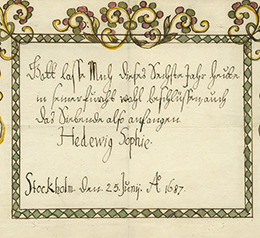 Gott lasse Mich dieses Sechste Jahr heute
in seiner furcht wohl beschlüssen, auch
das Siebende also anfangen.
Hedewig Sophie.
Stockholm den 25 Junij. Aº 1687.